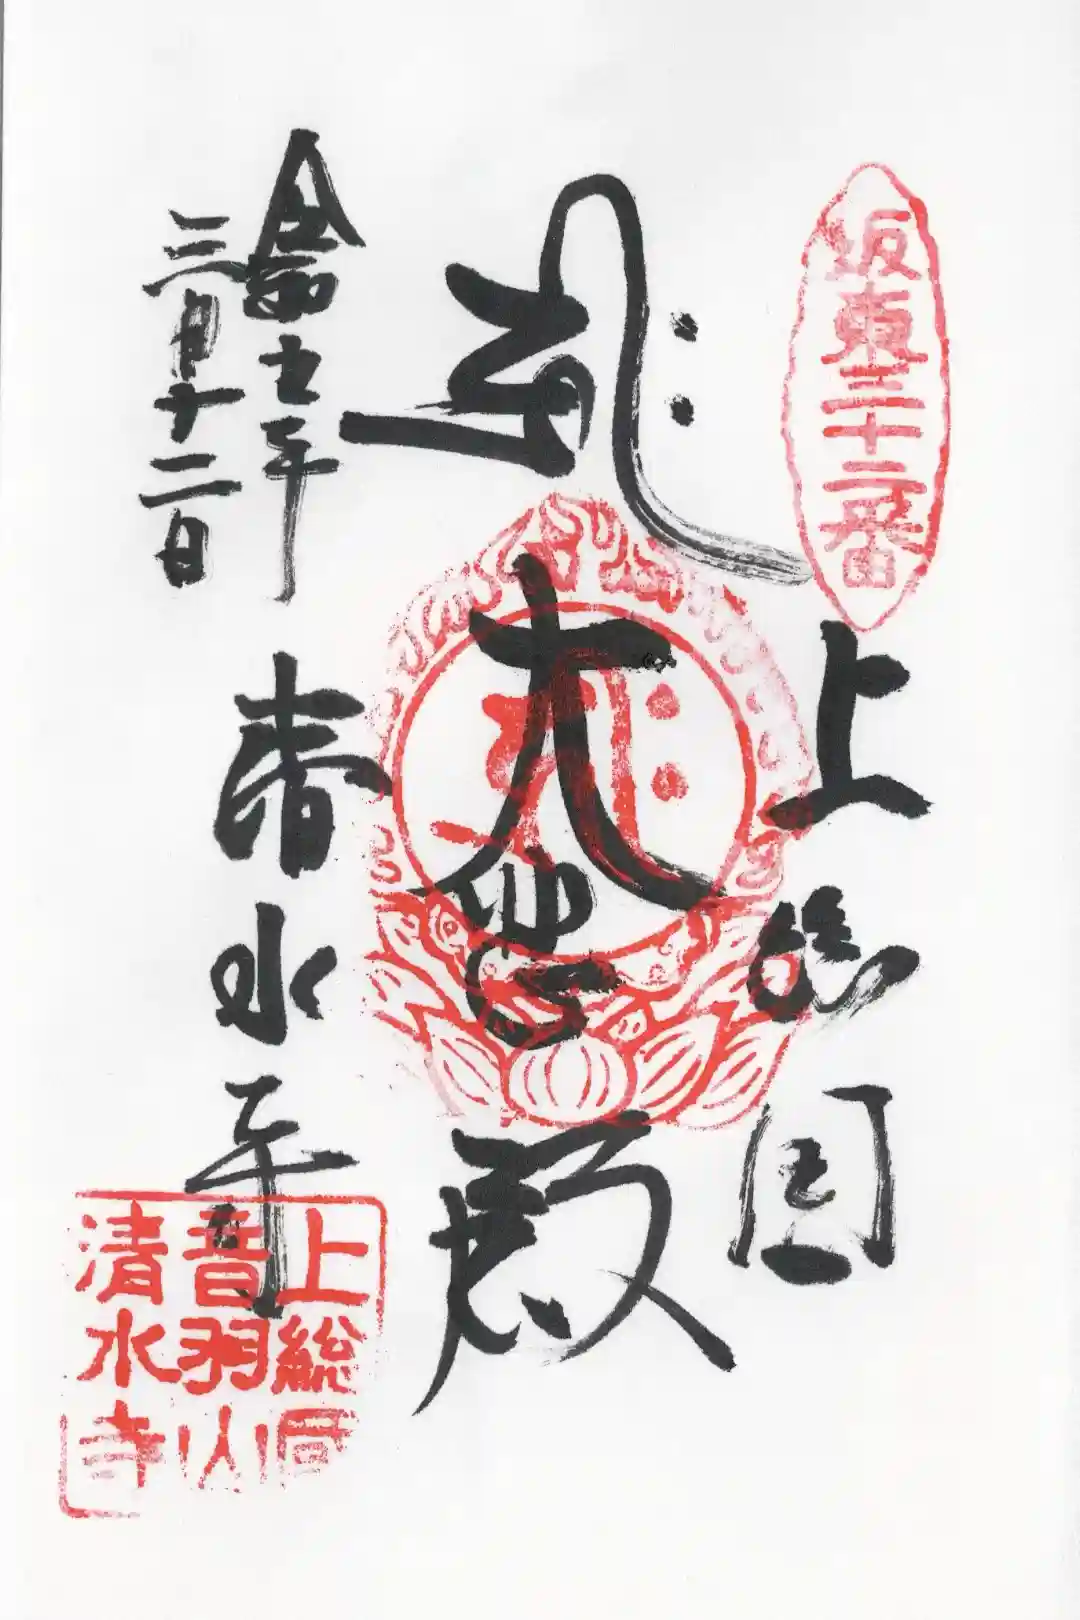 坂東三十二番
上総国
ह्रीः
大悲殿
ह्रीः
令和七年
三月十二日
清水寺
上総国
音羽山
清水寺